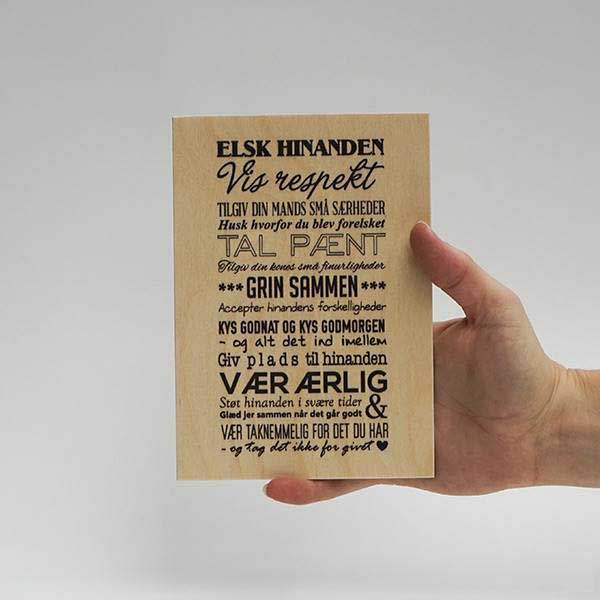 ELSK HINANDEN
Vis respekt
TILGIV DIN MANDS SMÅ SÆRHEDER
Husk hvorfor du blev forelsket
TAL PÆNT
Tilgiv din kones små finurligheder
*** GRIN SAMMEN ***
Accepter hinandens forskelligheder
KYS GODNAT OG KYS GODMORGEN
- og alt det ind imellem
Giv plads til hinanden
VÆR ÆRLIG
Støt hinanden i svære tider
Glæd jer sammen når det går godt &
VÆR TAKNEMMELIG FOR DET DU HAR
- og tag det ikke for givet ♥